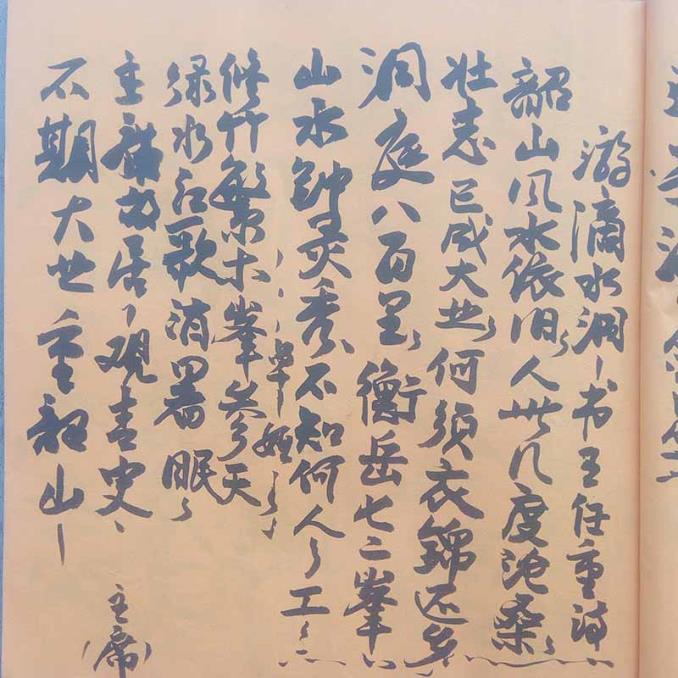 游滴水洞、书王任重诗
韶山风水依旧,人世几度沧桑,
壮志已成大业,何须衣锦还乡
洞庭八百里,衡岳七二峯
山水钟灵秀,不知何人之工
修竹繁木峯参天
绿水红歌消暑眠、
主故居、观青史、
(主席)
不期大世重韶山